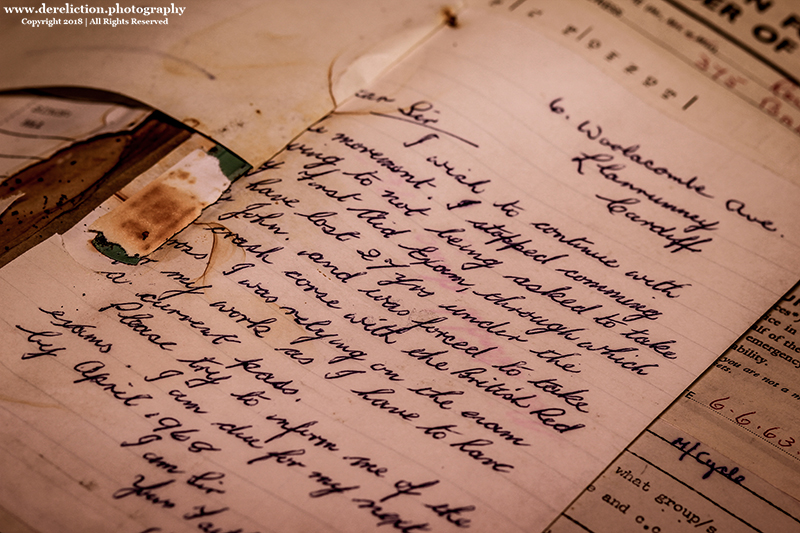 www.dereliction.photography
Copyright 2018 | All Rights Reserved
6. Woolacombe Ave.
Llanrumney
Cardiff
ear Sir
I wish to continue with
movement. I stopped comming
owing to not being asked to take
First Aid Exam, through which
have lost 2 yrs under the
John. and was forced to take
crash come with the British Red
I was relying on the exam
my work as I have to have
a current pass.
Please try to inform me of the
exams. I am due for my next
by April 1968
I am Sir
ER OF
375
vice in
half of the
emergency
ability.
you are not a m
E. 6.6.63.
M/Cycle
what group/s
and c.c.